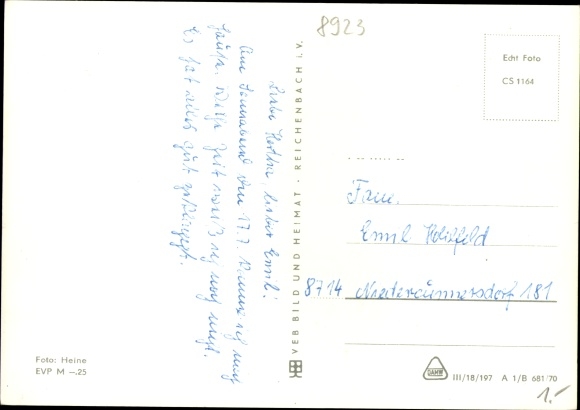 8923
Echt Foto
CS 1164
Liebe Hertha, lieber Emil!
Am Sonnabend den 17.7. komme ich nach
Hause. Welche Zeit weiß ich noch nicht.
Es hat alles gut geklappt.
VEB BILD UND HEIMAT · REICHENBACH i. V.
Fam.
Emil
8714 Niedercunnersdorf 181
Foto: Heine
EVP M –.25
DAHW
III/18/197 A 1/B 681/70
1.-